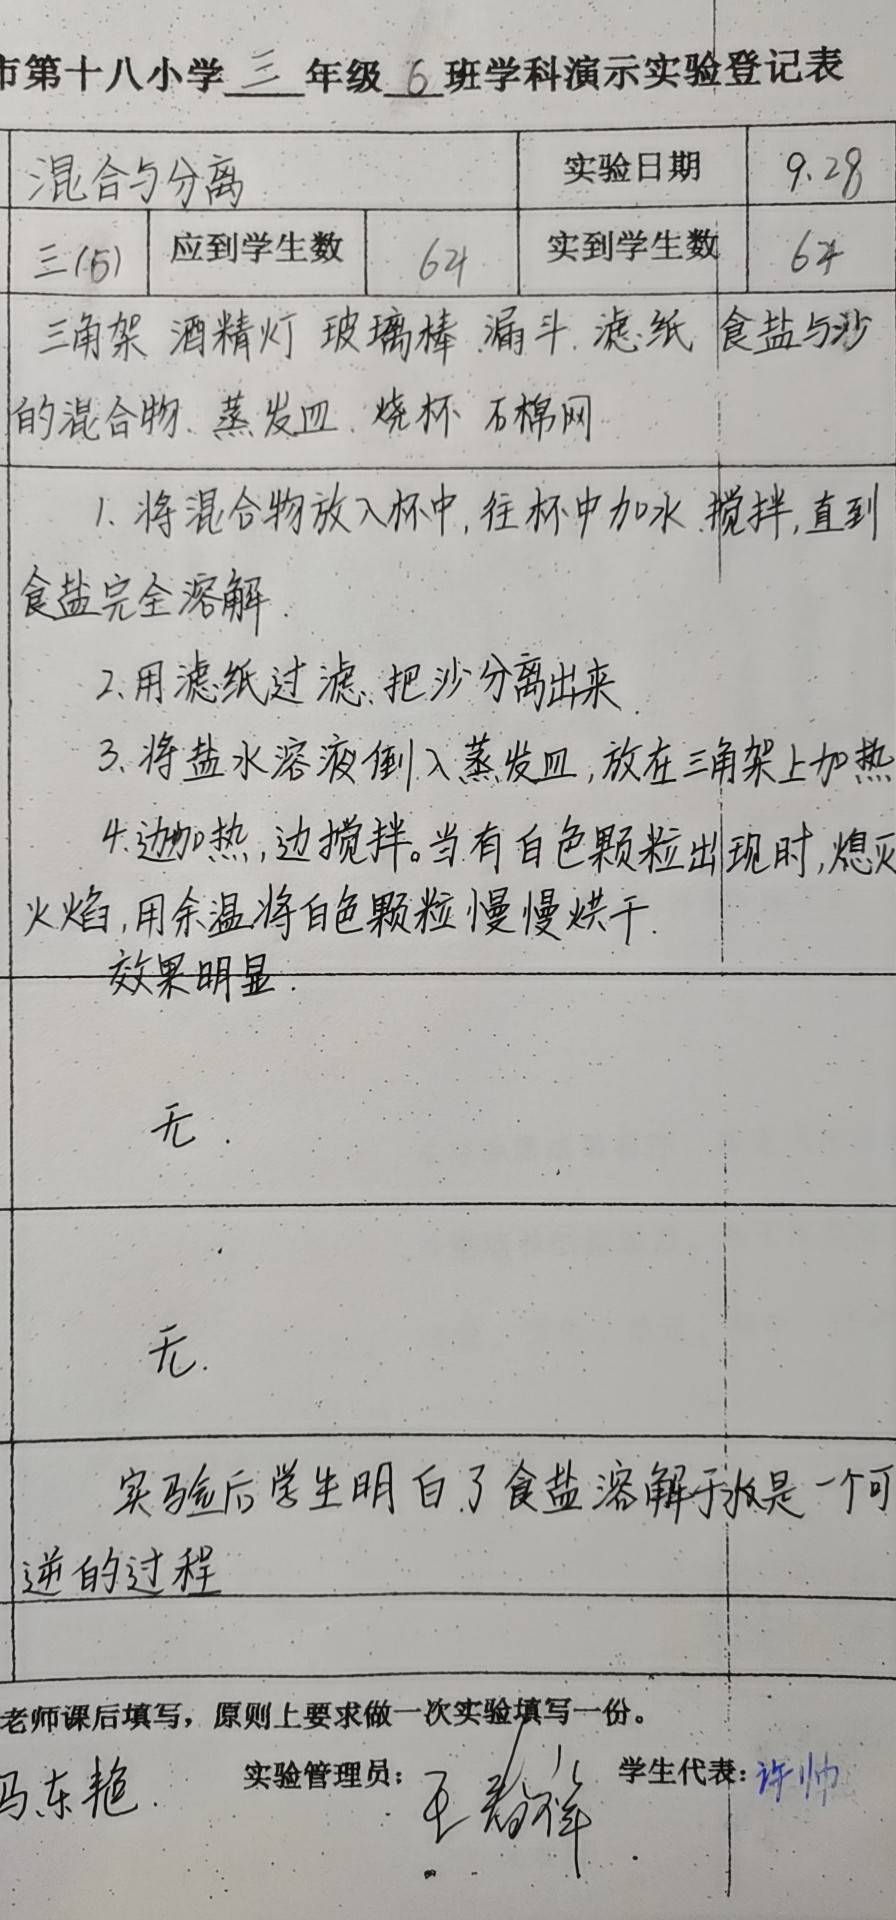 市第十八小学三年级6班学科演示实验登记表
混合与分离 实验日期 9.28
三(5) 应到学生数 64 实到学生数 64
三角架 酒精灯 玻璃棒 漏斗. 滤纸 食盐与沙
的混合物. 蒸发皿. 烧杯 石棉网
1. 将混合物放入杯中,往杯中加水.搅拌,直到
食盐完全溶解.
2.用滤纸过滤.把沙分离出来.
3.将盐水溶液倒入蒸发皿,放在三角架上加热
4.边加热,边搅拌。当有白色颗粒出现时,熄灭
火焰,用余温将白色颗粒慢慢烘干.
效果明显.
无.
无.
实验后学生明白了食盐溶解于水是一个可
逆的过程
老师课后填写，原则上要求做一次实验填写一份。
马东艳. 实验管理员： 王 学生代表：许帅